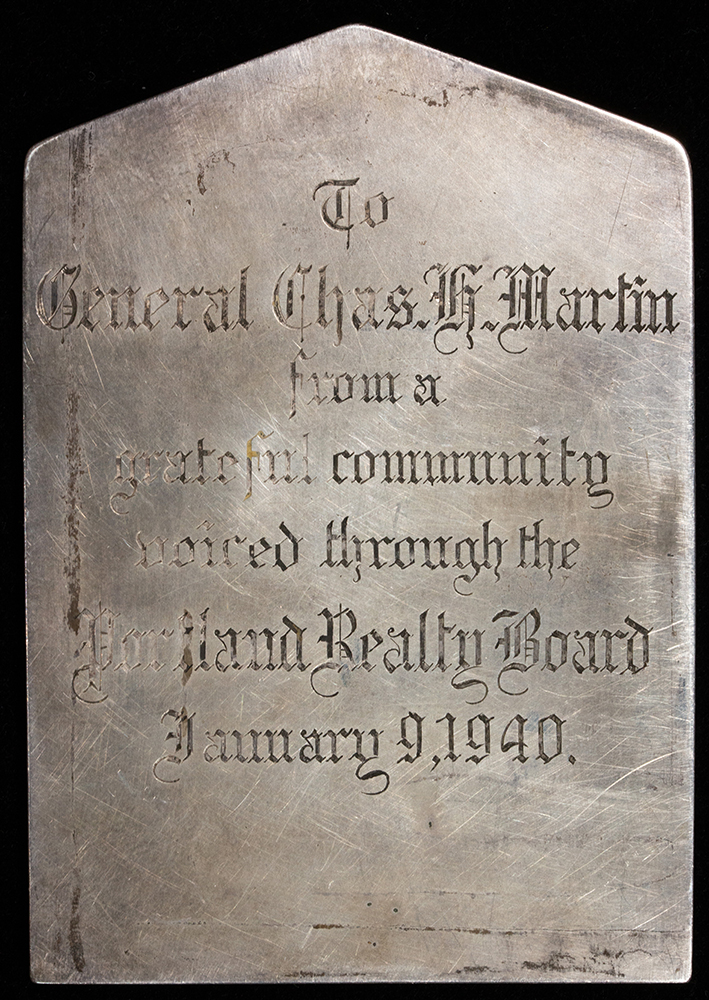 To
General Chas. H. Martin
from a
grateful community
voiced through the
Portland Realty Board
January 9, 1940.